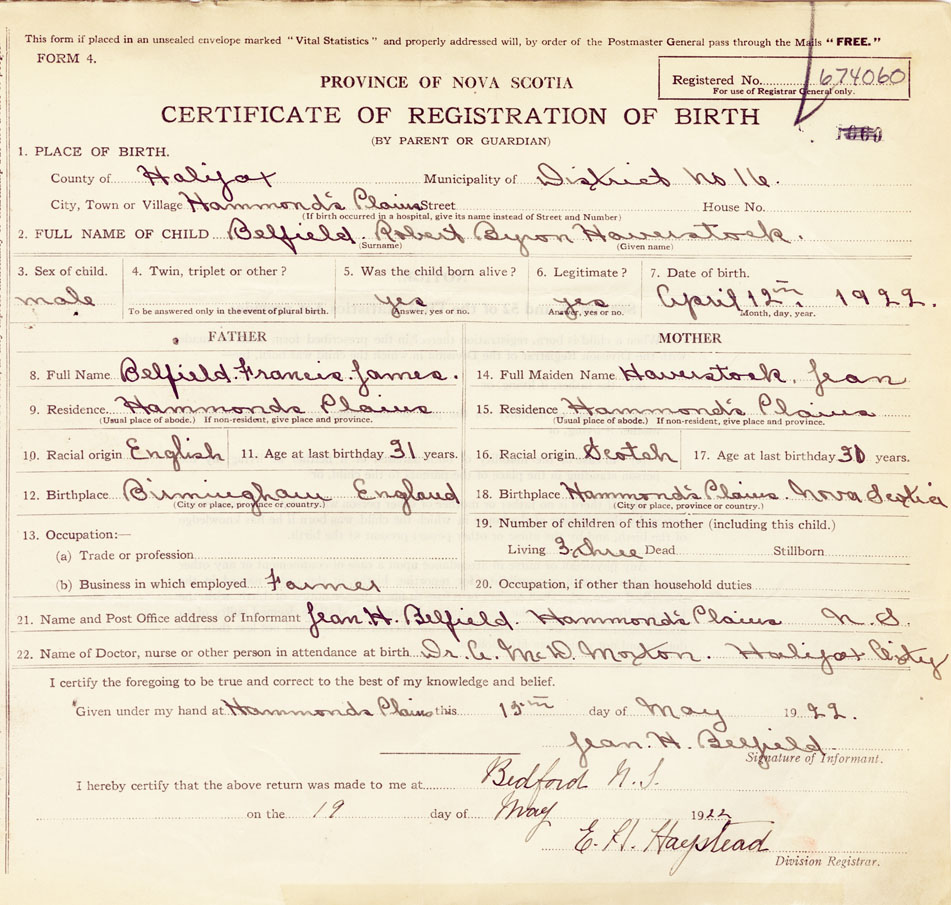 This form if placed in an unsealed envelope marked "Vital Statistics" and properly addressed will, by order of the Postmaster General pass through the Mails "FREE."
FORM 4.
Registered No. 674060
For use of Registrar General only.
PROVINCE OF NOVA SCOTIA
CERTIFICATE OF REGISTRATION OF BIRTH
(BY PARENT OR GUARDIAN)
1. PLACE OF BIRTH.
County of Halifax Municipality of District No 16.
City, Town or Village Hammond's Plains Street House No.
(If birth occurred in a hospital, give its name instead of Street and Number)
2. FULL NAME OF CHILD Belfield. Robert Byron Haverstock.
(Surname) (Given name)
3. Sex of child. 4. Twin, triplet or other? 5. Was the child born alive? 6. Legitimate? 7. Date of birth.
male yes yes April 12th, 1922.
To be answered only in the event of plural birth. Answer, yes or no. Answer, yes or no. Month, day, year.
FATHER MOTHER
8. Full Name Belfield. Francis. James. 14. Full Maiden Name Haverstock. Jean
9. Residence. Hammonds Plains 15. Residence Hammond's Plains
(Usual place of abode.) If non-resident, give place and province. (Usual place of abode.) If non-resident, give place and province.
10. Racial origin English 11. Age at last birthday 31 years. 16. Racial origin Scotch 17. Age at last birthday years.
12. Birthplace Birmingham England 18. Birthplace Hammond's Plains. Nova Scotia
(City or place, province or country.) (City or place, province or country.)
13. Occupation:— 19. Number of children of this mother (including this child.)
(a) Trade or profession Living 3. three Dead Stillborn
(b) Business in which employed Farmer 20. Occupation, if other than household duties
21. Name and Post Office address of Informant Jean. H. Belfield. Hammond's Plains N. S.
22. Name of Doctor, nurse or other person in attendance at birth Dr. McD. Morton. Halifax City
I certify the foregoing to be true and correct to the best of my knowledge and belief.
Given under my hand at Hammonds Plains this day of May 1922.
Jean. H. Belfield
Signature of Informant.
I hereby certify that the above return was made to me at Bedford N. S.
on the 19 day of May 1922
E. H. Haystead
Division Registrar.